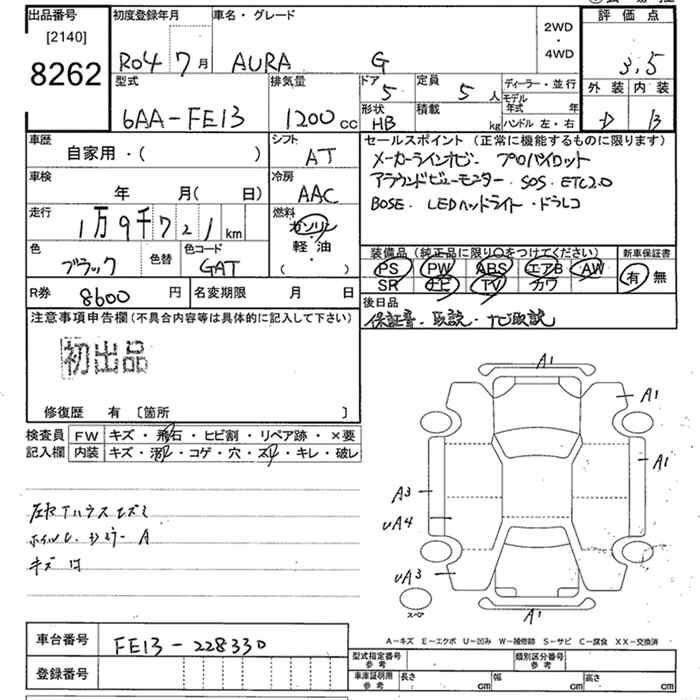 出品番号 初度登録年月 車名・グレード 2WD・4WD 評価点
[2140]
8262
R04 7月 AURA G 3.5
型式 排気量 ドア 5 定員 5人 ディーラー・並行 外装 内装
6AA-FE13 1200cc 形状 HB 積載 kg モデル年式 年 ハンドル 左・右 D B
車歴 シフト セールスポイント (正常に機能するものに限ります)
自家用・( ) AT メーカーラインナビ プロパイロット
車検 冷房 アラウンドビューモニター SOS ETC2.0
年 月( 日) AAC BOSE. LEDヘッドライト・ドラレコ
走行 燃料
1万9千721km ガソリン
軽・油
( )
色 色替 色コード 装備品 (純正品に限り○をつけてください) 新車保証書
ブラック GAT PS PW ABS エアB AW 有 無
SR ナビ TV カワ
R券 8600円 名変期限 月 日 後日品
注意事項申告欄(不具合内容等は具体的に記入して下さい) 保証書. 取説. ナビ取説
初出品
修復歴 有 [箇所 ]
検査員記入欄 FW キズ・飛石・ヒビ割・リペア跡・×要
内装 キズ・汚れ・コゲ・穴・スレ・キレ・破レ
A1
A1
A1
A3
UA4
UA3
A1
スペア
キズ
A-キズ E-エクボ U-凹み W-補修跡 S-サビ C-腐食 XX-交換済
車台番号 FE13-228330
登録番号
型式指定番号 参考 類別区分番号 参考
車庫証明用 参考 長さ cm 幅 cm 高さ cm